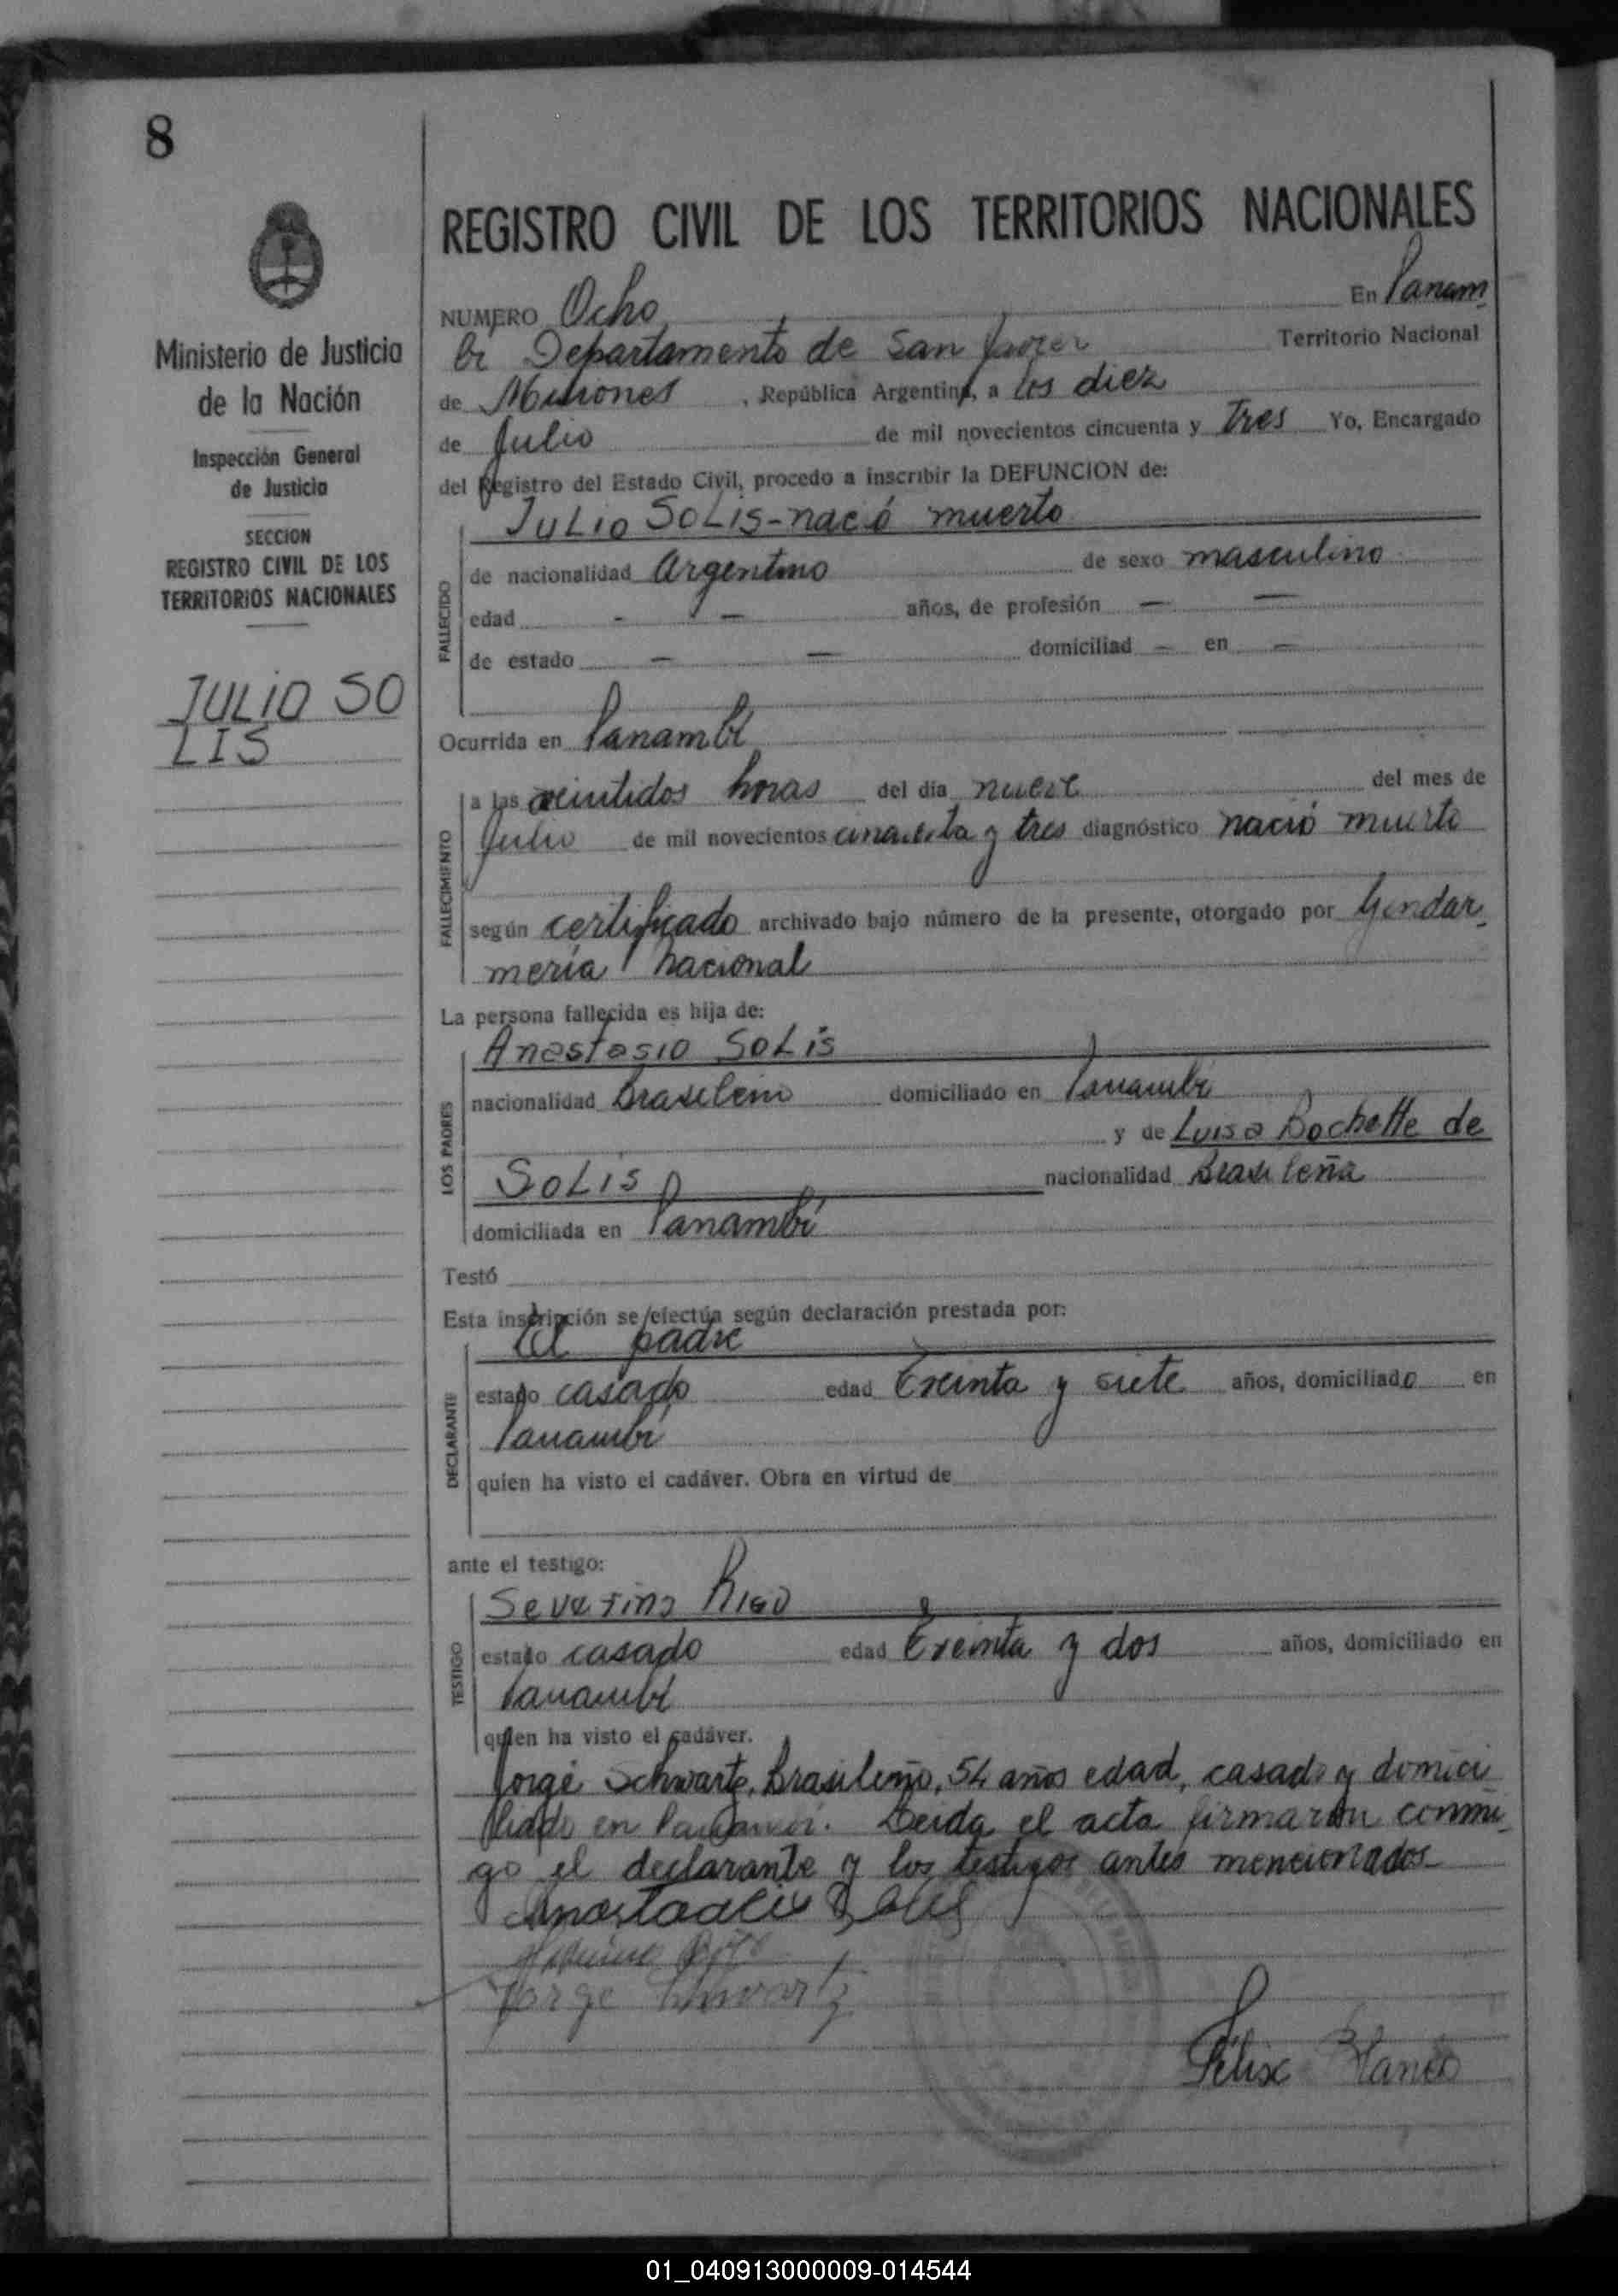 8
Ministerio de Justicia
de la Nación
Inspección General
de Justicia
SECCION
REGISTRO CIVIL DE LOS
TERRITORIOS NACIONALES
JULIO SO
LIS
REGISTRO CIVIL DE LOS TERRITORIOS NACIONALES
NUMERO Ocho En Panam
bí Departamento de San Javier Territorio Nacional
de Misiones, República Argentina, a los diez
de Julio de mil novecientos cincuenta y Tres Yo, Encargado
del Registro del Estado Civil, procedo a inscribir la DEFUNCION de:
JULIO SOLIS-nació muerto
FALLECIDO
de nacionalidad Argentino de sexo masculino
edad - - años, de profesión - -
de estado - - domiciliad - en -
Ocurrida en Panambí
FALLECIMIENTO
a las veintidos horas del día nueve del mes de
Julio de mil novecientos cincuenta y tres diagnóstico nació muerto
según certificado archivado bajo número de la presente, otorgado por Gendar
mería nacional
La persona fallecida es hija de:
LOS PADRES
Anastasio SOLIS
nacionalidad Brasileño domiciliado en Panambí
y de Luisa Bochette de
SOLIS nacionalidad Brasileña
domiciliada en Panambí
Testó
Esta inscripción se efectúa según declaración prestada por:
DECLARANTE
El padre
estado casado edad treinta y siete años, domiciliado en
Panambí
quien ha visto el cadáver. Obra en virtud de
ante el testigo:
TESTIGO
Severino Rigo
estado casado edad treinta y dos años, domiciliado en
Panambí
quien ha visto el cadáver.
Jorge Schwartz, Brasileño, 54 años edad, casado y domici
liado en Panambí. Leida el acta firmaron conmi
go el declarante y los testigos antes mencionados
Jorge Schwartz
Félix Blanco
01_040913000009-014544